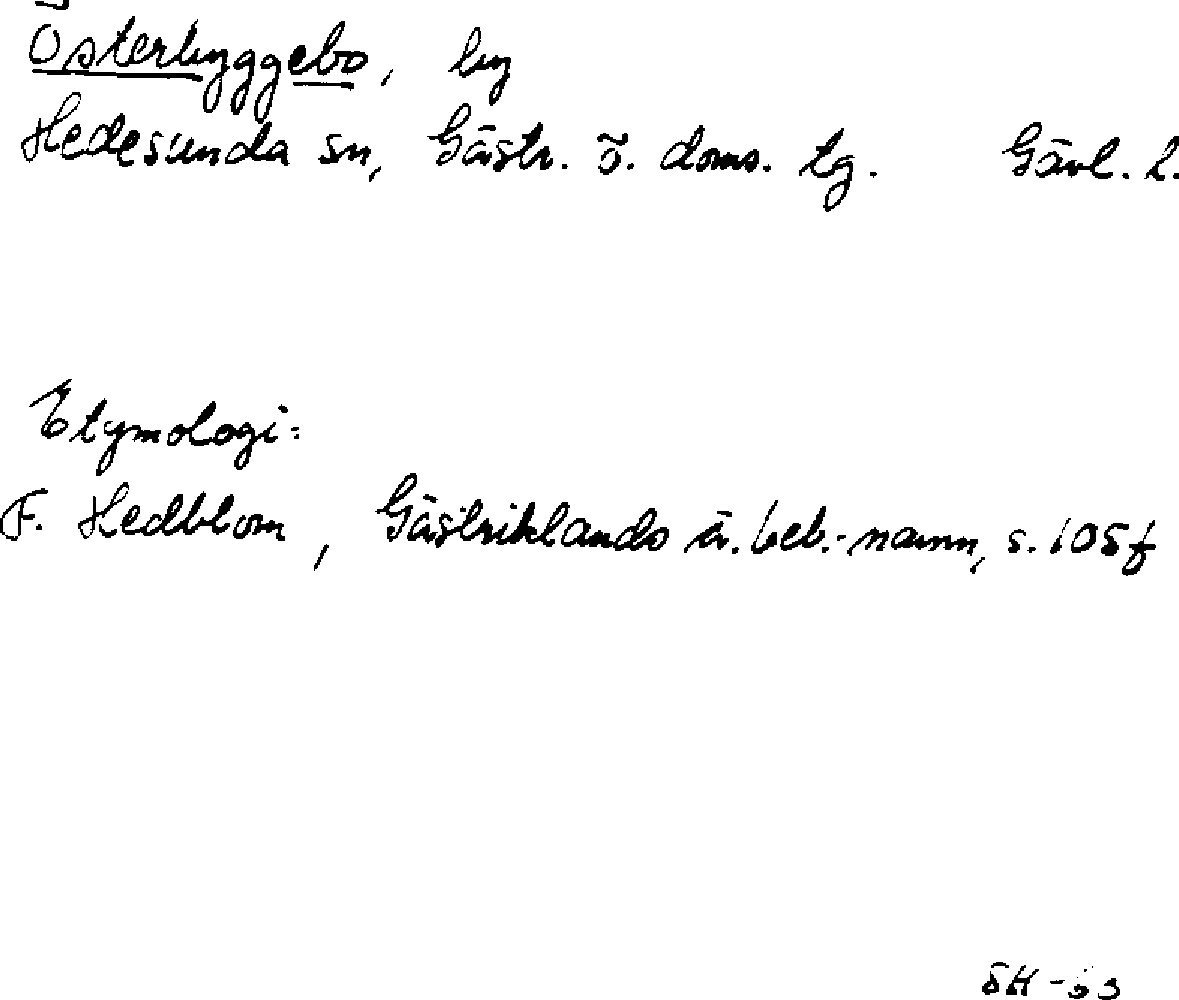 Österbyggebo, by
Hedesunda sn, Gästr. ö. doms. tg. Gävl. l.
Etymologi:
F. Hedblom, Gästriklands ä. beb.-namn, s. 105 f